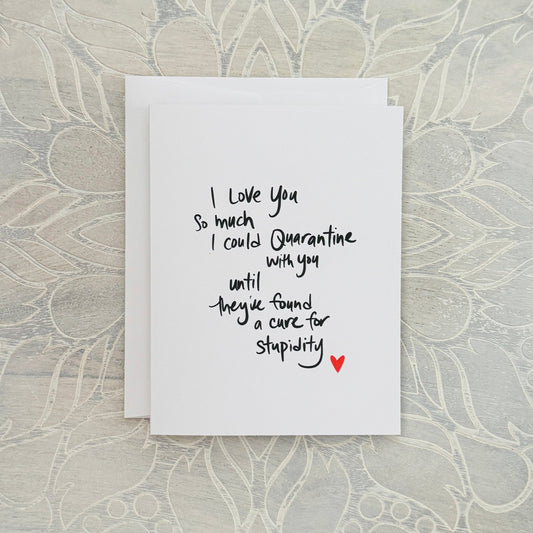 I Love You
So much
I could Quarantine
with you
until
they've found
a cure for
stupidity